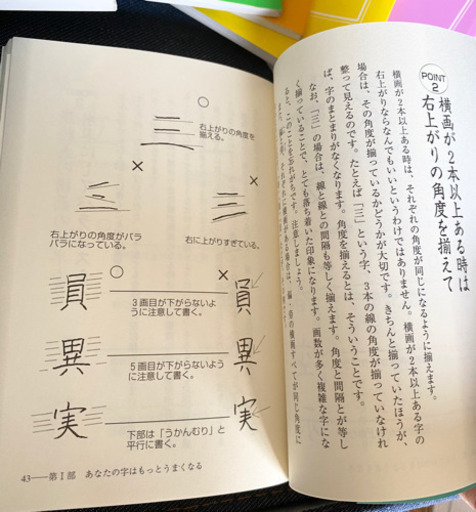 POINT
2
横画が2本以上ある時は
右上がりの角度を揃えて
横画が2本以上ある時は、それぞれの角度が同じになるように揃えます。
右上がりならなんでもいいというわけではありません。横画が2本以上ある字の
場合は、その角度が揃っているかどうかが大切です。きちんと揃っていたほうが、
整って見えるのです。たとえば「三」という字、3本の線の角度が揃っていなけれ
ば、字のまとまりがなくなります。角度を揃えるとは、そういうことです。
なお、「三」の場合は、線と線との間隔も等しく揃えます。角度と間隔とが等し
く揃っていることで、とても落ち着いた印象になります。画数が多く複雑な字にな
ると、このことを忘れがちです。注意しましょう。
横画がある場合は、偏・旁の横画すべてが同じ角度に
○
三
右上がりの角度を
揃える。
×
三
右上がりの角度がバラ
バラになっている。
×
三
右に上がりすぎている。
○
×
員
3画目が下がらないよ
うに注意して書く。
員
異
5画目が下がらないよう
に注意して書く。
異
実
下部は「うかんむり」と
平行に書く。
実
43──第Ⅰ部 あなたの字はもっとうまくなる